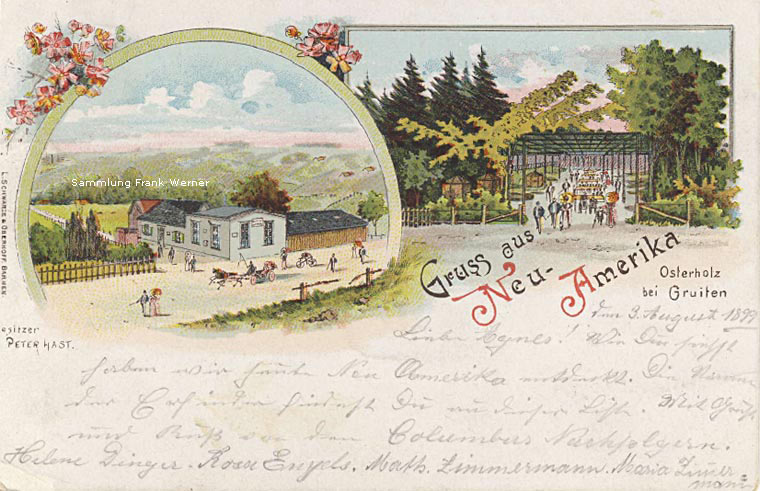 Sammlung Frank Werner
L. SCHWARZ & OBERHOFF. BARMEN
Gruss aus
Neu-Amerika
Osterholz
bei Gruiten
esitzer
PETER HAST.
den 3. August 1899
Liebe Agnes! Wie Du siehst
haben wir heute Neu Amerika entdeckt. Die Namen
der Erfinder findest Du an dieser Liste. Mit Gruß
und Kuß von den Columbus Nachfolgern.
Helene Dinger. Rosa Engels. Math. Zimmermann. Maria Zimmer
mann